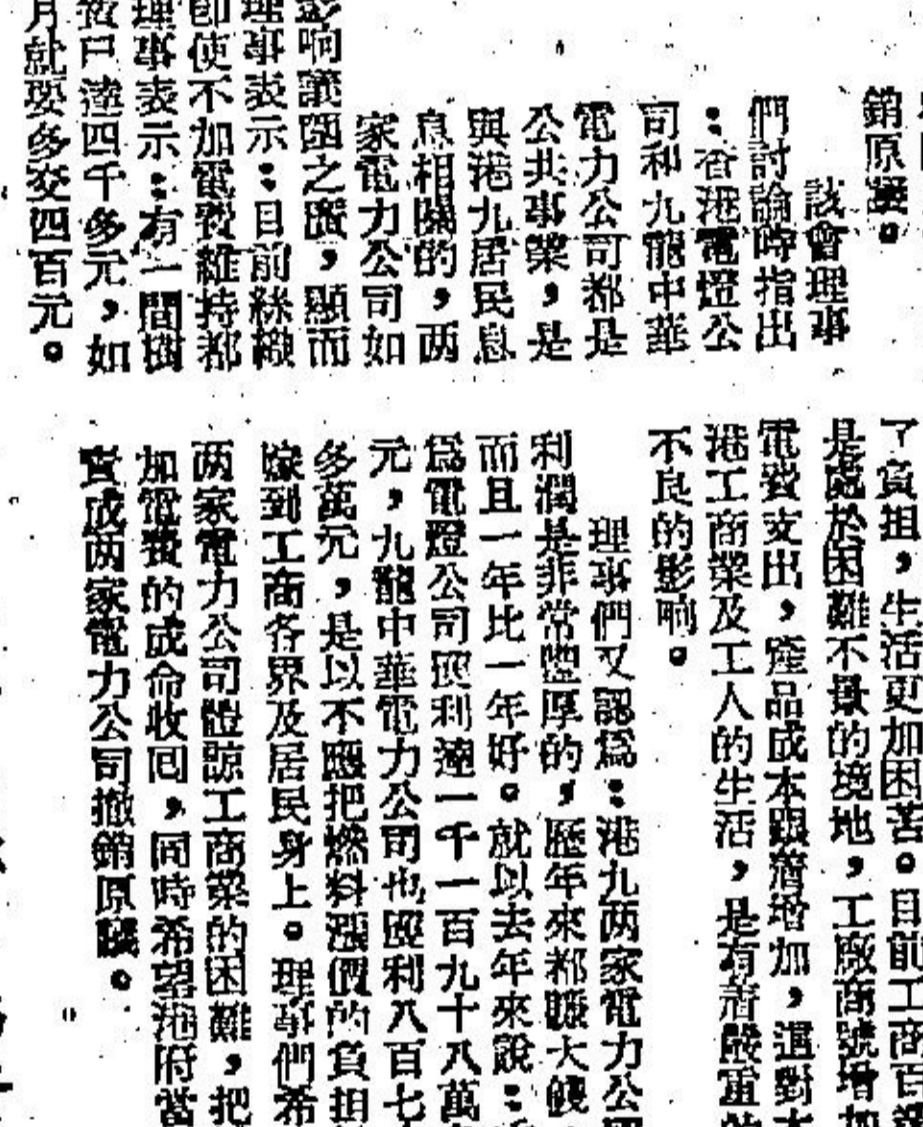 銷原議。
該會理事
們討論時指出
：香港電燈公
司和九龍中華
電力公司都是
公共事業，是
與港九居民息
息相關的，两
家電力公司如
影响議題之廣，顯而
理事表示：目前絲織
即使不加電費維持都
理事表示：有一間樹
費已達四千多元，如
月就要多交四百元。
了負担，生活更加困苦。目前工商百
是處於困難不景的境地，工廠商號增加
電費支出，產品成本跟着增加，這對本
港工商業及工人的生活，是有着嚴重的
不良的影响。
理事們又認爲：港九两家電力公司
利潤是非常豐厚的，歷年來都賺大錢，
而且一年比一年好。就以去年來說：
爲電燈公司獲利達一千一百九十八萬
元，九龍中華電力公司也獲利八百七
多萬元，是以不應把燃料漲價的負担
嫁到工商各界及居民身上。理事們希
两家電力公司體諒工商業的困難，把
加電費的成命收囘，同時希望港府當
責成两家電力公司撤銷原議。